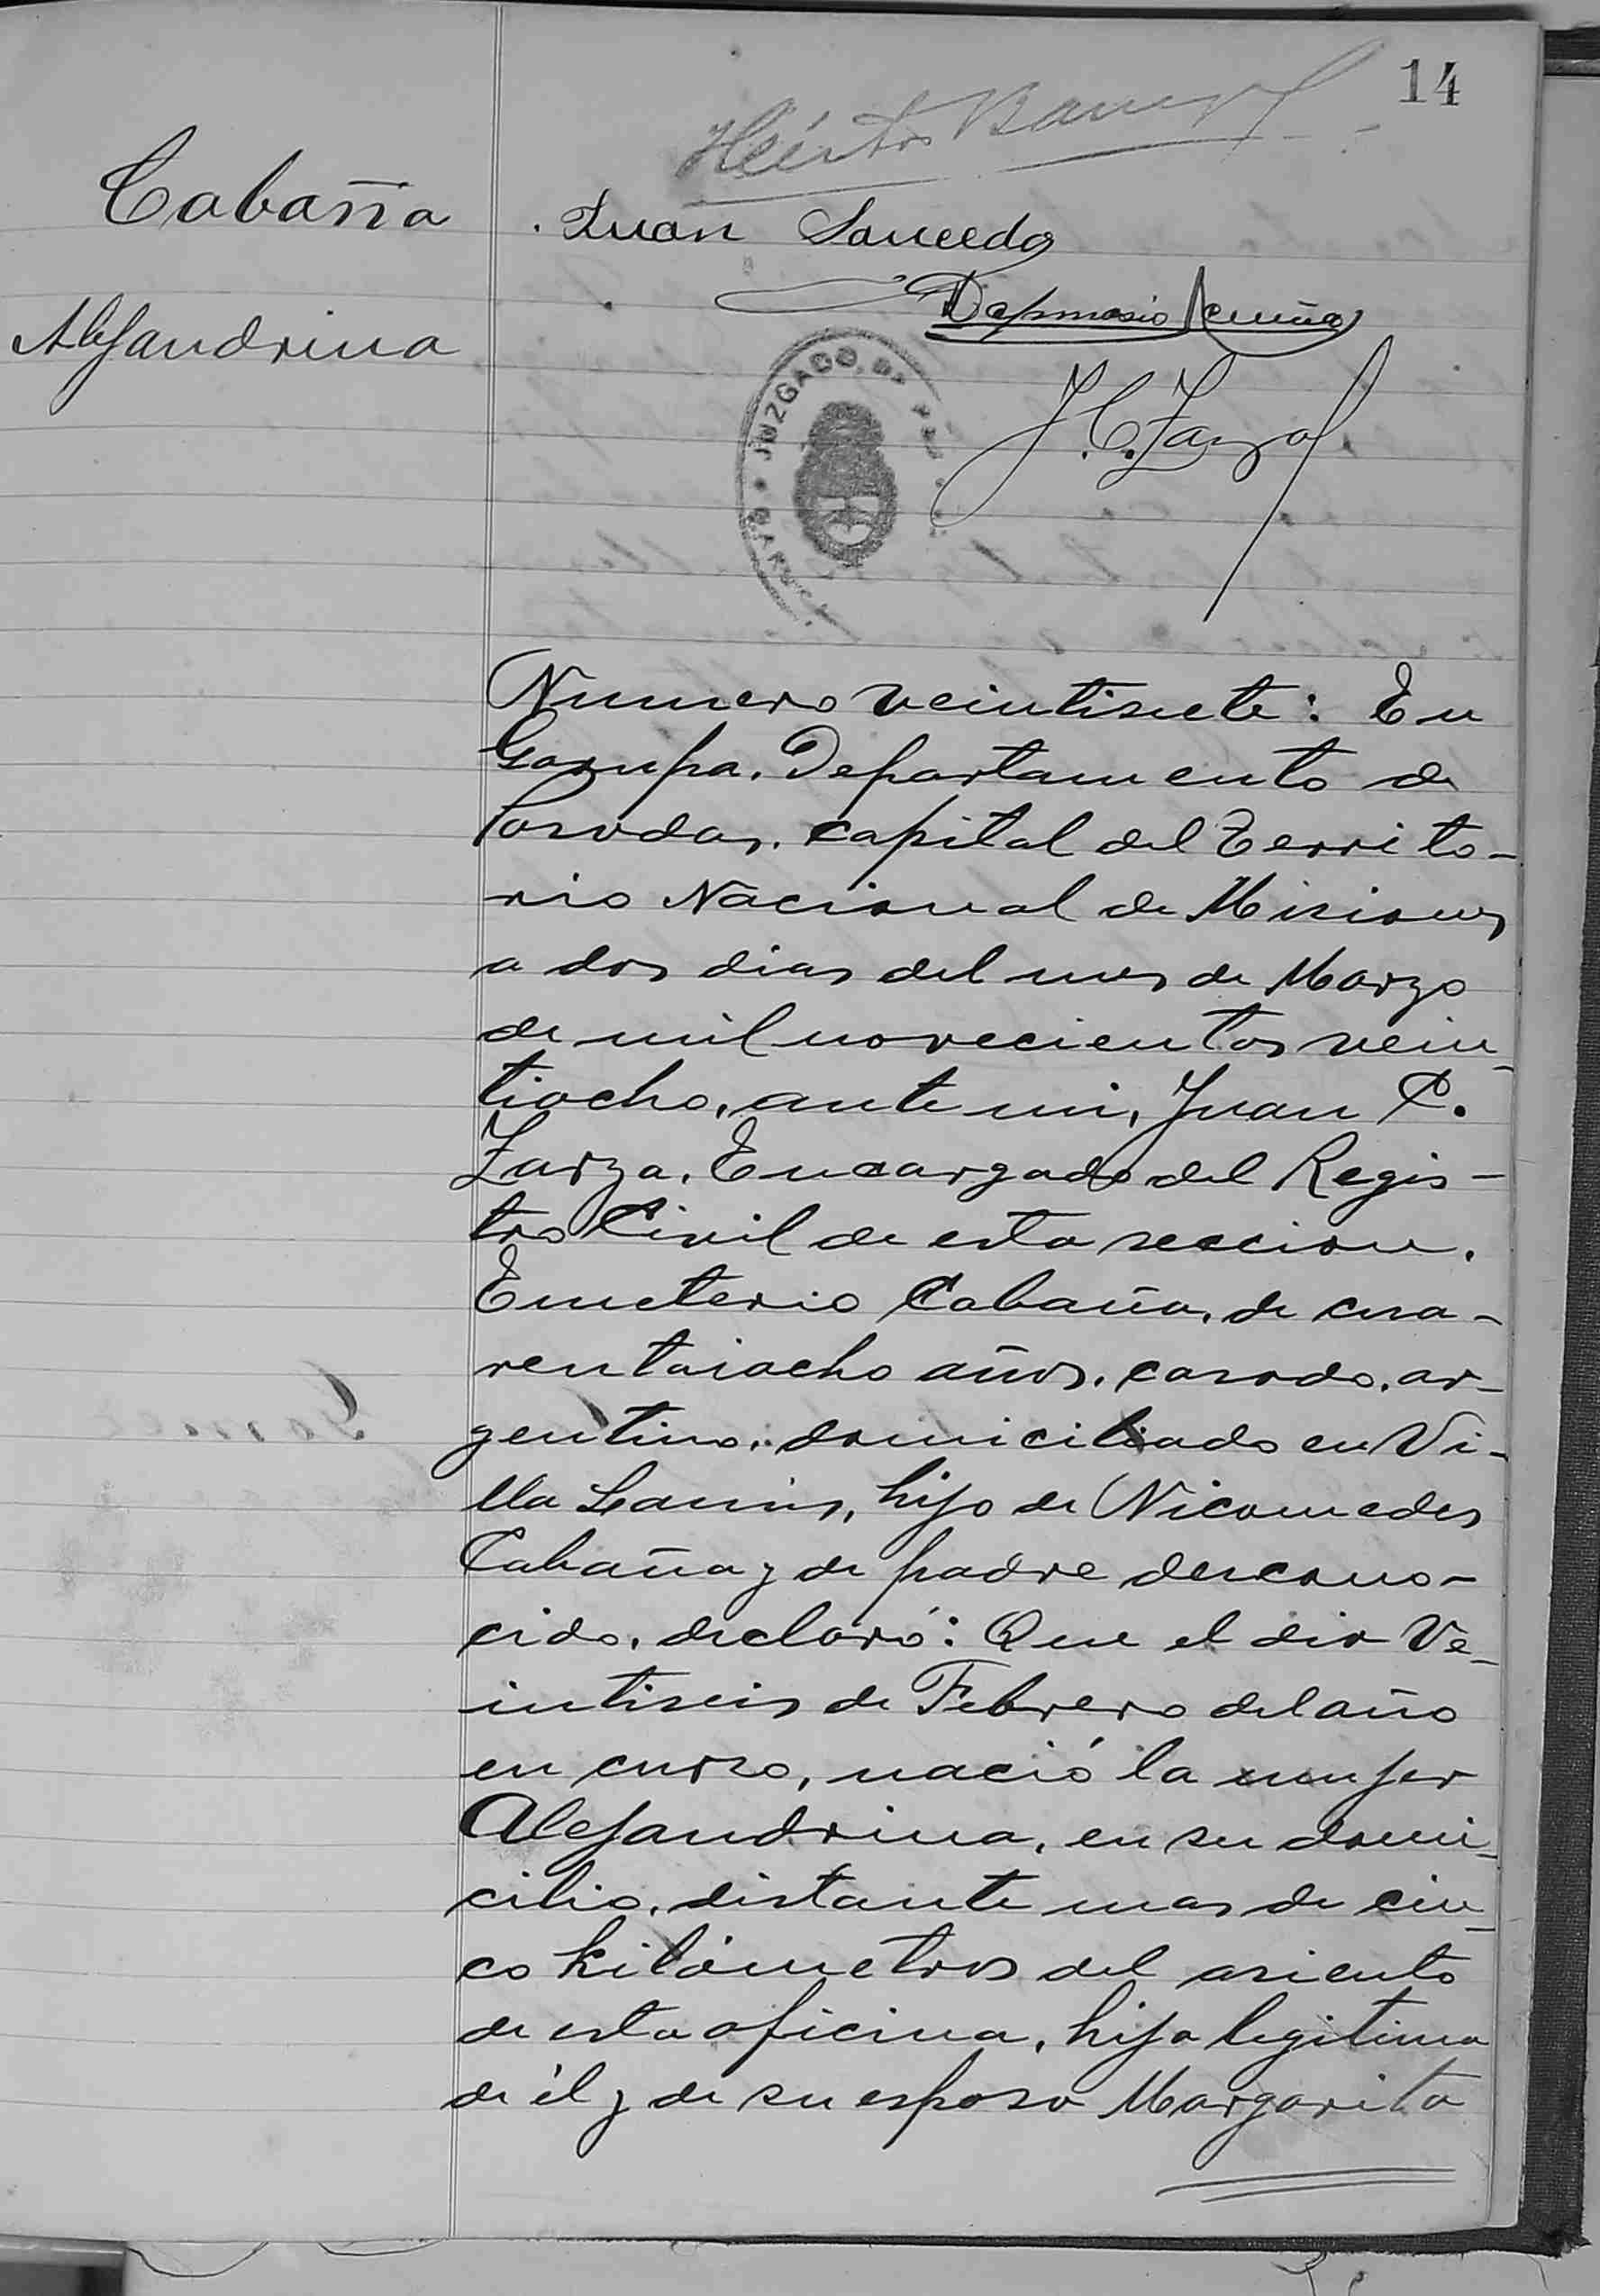 14
Héctor
Cabaña
Juan Saucedo
Alejandrina
Acuña
J. C. Zarza
JUZGADO DE PAZ
Numero veintisiete: En
Garupa, Departamento de
Posadas, capital del Territo-
rio Nacional de Misiones
a dos dias del mes de Marzo
de mil novecientos vein-
tiocho, ante mi, Juan C.
Zarza, Encargado del Regis-
tro Civil de esta seccion,
Emeterio Cabaña, de cua-
rentaiocho años, casado, ar-
gentino, domiciliado en Vi-
lla Lanús, hijo de Nicomedes
Cabaña y de padre descono-
cido, declaró: Que el dia Ve-
intiseis de Febrero del año
en curso, nació la mujer
Alejandrina, en su domi-
cilio, distante mas de cin-
co kilómetros del asiento
de esta oficina, hija legitima
de él y de su esposa Margarita